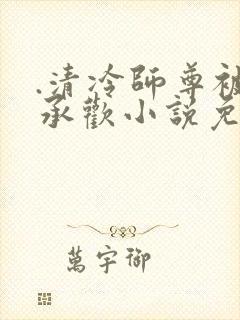 .清冷師尊被
承歡小說免
萬宇御